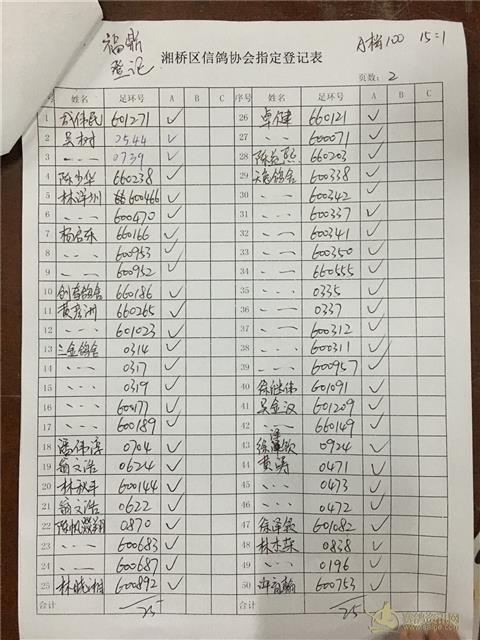 福鼎
登记
A档100 15=1
湘桥区信鸽协会指定登记表
页数: 2
序号 姓名 足环号 A B C 序号 姓名 足环号 A B C
1 601271 ✓ 26 卓健 660121 ✓
2 吴树 2544 ✓ 27 〃 600071 ✓
3 〃 0739 ✓ 28 660203 ✓
4 陈少华 660238 ✓ 29 600338 ✓
5 林泽州 600466 ✓ 30 〃 600342 ✓
6 〃 600470 ✓ 31 〃 600337 ✓
7 杨启东 660166 ✓ 32 〃 600341 ✓
8 〃 600953 ✓ 33 〃 600350 ✓
9 〃 600952 ✓ 34 〃 660555 ✓
10 创喜鸽舍 660186 ✓ 35 〃 0335 ✓
11 黄彦洲 660265 ✓ 36 〃 0337 ✓
12 〃 601023 ✓ 37 〃 600312 ✓
13 三金鸽舍 0314 ✓ 38 〃 600311 ✓
14 〃 0317 ✓ 39 〃 600957 ✓
15 〃 0319 ✓ 40 徐继伟 601091 ✓
16 〃 600177 ✓ 41 吴金汉 601209 ✓
17 〃 600189 ✓ 42 〃 660149 ✓
18 潘伟淳 0704 ✓ 43 徐泽钦 0924 ✓
19 翁文浩 0624 ✓ 44 黄涛 0471 ✓
20 林秋平 600144 ✓ 45 〃 0473 ✓
21 翁文浩 0622 ✓ 46 〃 0472 ✓
22 0870 ✓ 47 徐泽钦 601082 ✓
23 〃 600683 ✓ 48 林木荣 0838 ✓
24 〃 600687 ✓ 49 〃 0196 ✓
25 林晓相 600892 ✓ 50 600753 ✓
合计 25 合计 25